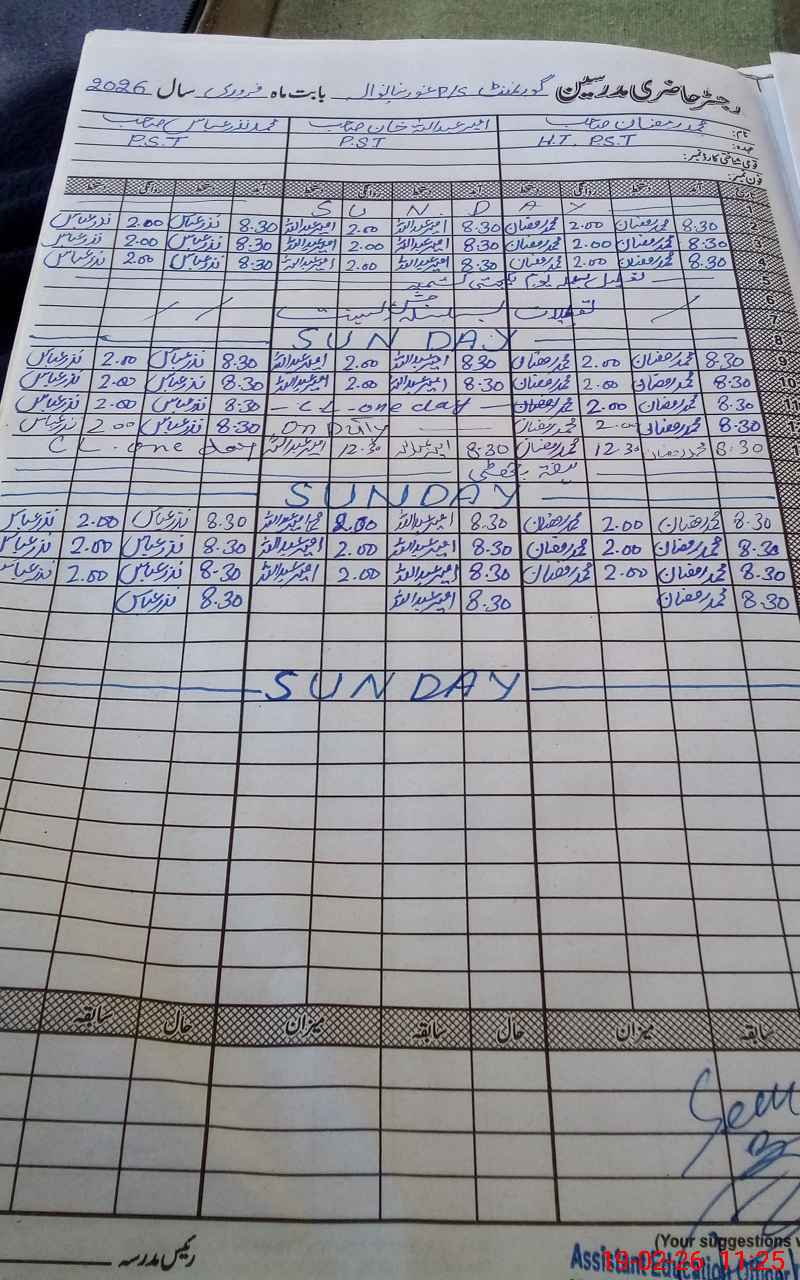 رجسٹر حاضری مدرسین گورنمنٹ P/S بابت ماہ فروری سال 2026
نام: محمد رمضان صاحب امیر عبداللہ خان صاحب محمد نذر عباس صاحب
عہدہ: H.T. P.S.T P.ST P.S.T
قومی شناختی کارڈ نمبر:
فون نمبر:
آمد دستخط روانگی دستخط آمد دستخط روانگی دستخط آمد دستخط روانگی دستخط
1 SUNDAY
2 8.30 محمد رمضان 2.00 محمد رمضان 8.30 امیر عبداللہ 2.00 امیر عبداللہ 8.30 نذر عباس 2.00 نذر عباس
3 8.30 محمد رمضان 2.00 محمد رمضان 8.30 امیر عبداللہ 2.00 امیر عبداللہ 8.30 نذر عباس 2.00 نذر عباس
4 8.30 محمد رمضان 2.00 محمد رمضان 8.30 امیر عبداللہ 2.00 امیر عبداللہ 8.30 نذر عباس 2.00 نذر عباس
5 تعطیل بسلسلہ یوم یکجہتی کشمیر
6
7 تعطیلات بسلسلہ جشن بسنت
8 SUNDAY
9 8.30 محمد رمضان 2.00 محمد رمضان 8.30 امیر عبداللہ 2.00 امیر عبداللہ 8.30 نذر عباس 2.00 نذر عباس
10 8.30 محمد رمضان 2.00 محمد رمضان 8.30 امیر عبداللہ 2.00 امیر عبداللہ 8.30 نذر عباس 2.00 نذر عباس
11 8.30 محمد رمضان 2.00 محمد رمضان - C L - one day - 8.30 نذر عباس 2.00 نذر عباس
12 8.30 محمد رمضان 2.00 محمد رمضان On Duty 8.30 نذر عباس 2.00 نذر عباس
8.30 محمد رمضان 12.30 محمد رمضان 8.30 امیر عبداللہ 12.30 امیر عبداللہ C L . one day
ہفتہ چھٹی
SUNDAY
8.30 محمد رمضان 2.00 محمد رمضان 8.30 امیر عبداللہ 2.00 امیر عبداللہ 8.30 نذر عباس 2.00 نذر عباس
8.30 محمد رمضان 2.00 محمد رمضان 8.30 امیر عبداللہ 2.00 امیر عبداللہ 8.30 نذر عباس 2.00 نذر عباس
8.30 محمد رمضان 2.00 محمد رمضان 8.30 امیر عبداللہ 2.00 امیر عبداللہ 8.30 نذر عباس 2.00 نذر عباس
8.30 محمد رمضان 8.30 امیر عبداللہ 8.30 نذر عباس
SUNDAY
سابقہ میزان حال سابقہ میزان حال سابقہ
(Your suggestions
رئیس مدرسہ
Assistant Education Officer
19-02-26 11:25